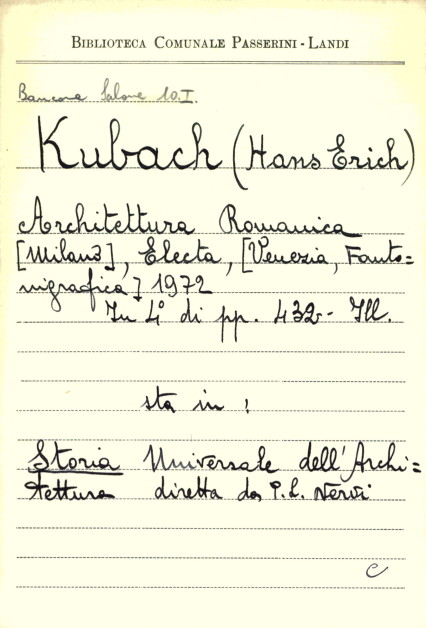 BIBLIOTECA COMUNALE PASSERINI - LANDI
Bancone Salone 10.I.
Kubach (Hans Erich)
Architettura Romanica
[Milano], Electa, [Venezia, Fanto=
nigrafica] 1972
In 4° di pp. 432 - Ill.
sta in :
Storia Universale dell'Archi=
tettura diretta da P.L. Nervi
C